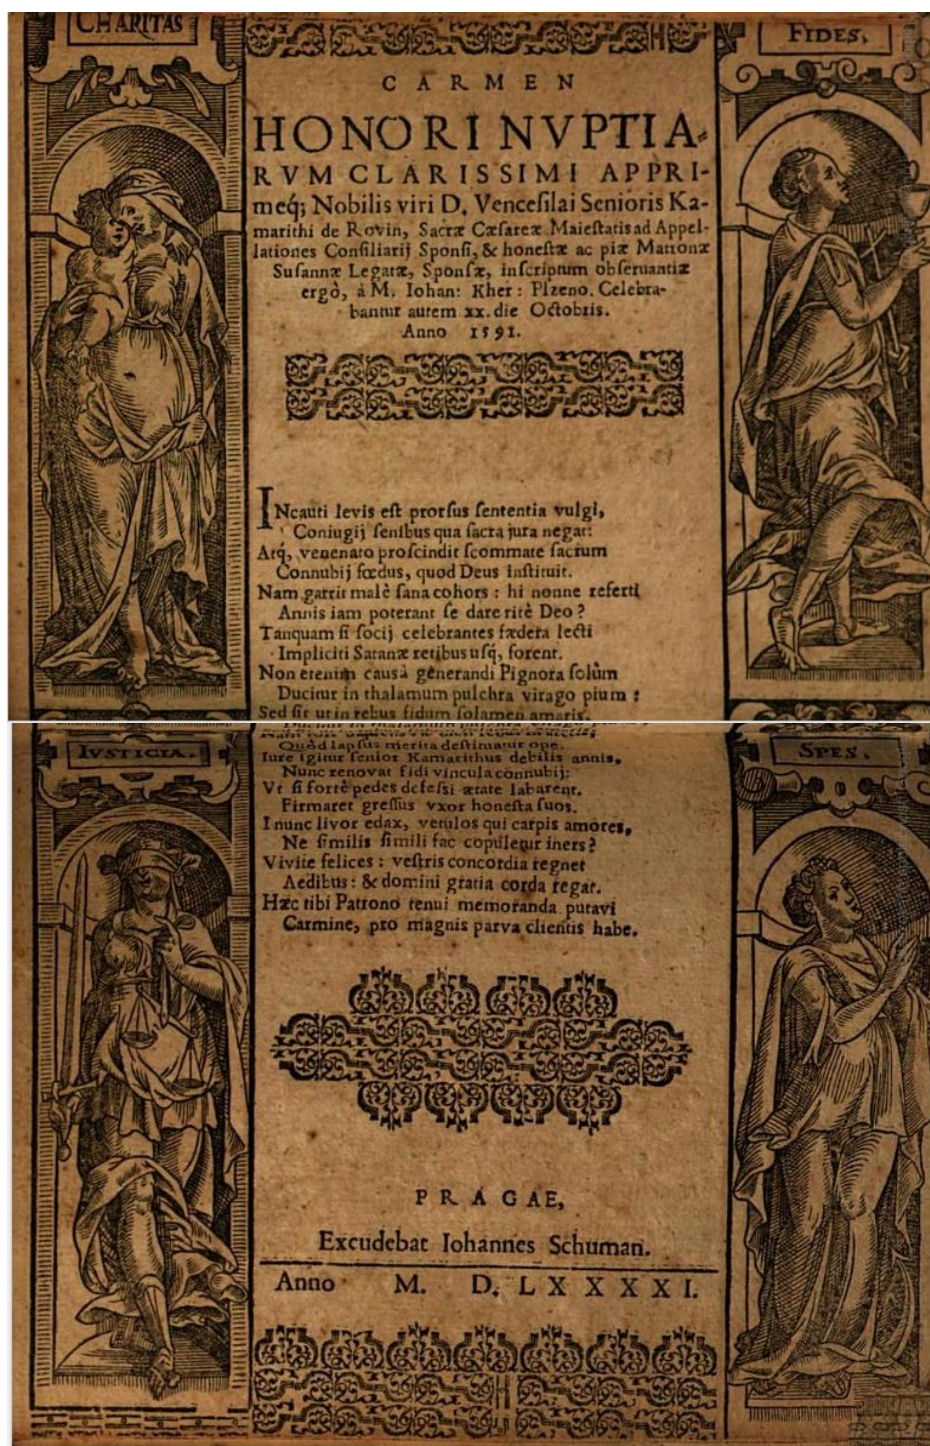 CHARITAS
FIDES.
CARMEN
HONORI NVPTIA-
RVM CLARISSIMI APPRI-
meq́; Nobilis viri D. Venceſilai Senioris Ka-
marithi de Rovin, Sacræ Cæſareæ Maieſtatis ad Appel-
lationes Conſiliarij Sponſi, & honeſtæ ac piæ Matronæ
Suſannæ Legatæ, Sponſæ, inſcriptum obſervantiæ
ergò, à M. Iohan: Kher: Plzeno. Celebra-
bantur autem xx. die Octobris.
Anno 1591.
INcauti levis eſt prorſus ſententia vulgi,
Coniugij ſenibus qua ſacra jura negat:
Atq́, venenato proſcindit ſcommate ſacrum
Connubij fœdus, quod Deus inſtituit.
Nam garrit malè ſana cohors: hi nonne referti
Annis iam poterant ſe dare ritè Deo?
Tanquam ſi ſocij celebrantes fædera lecti
Impliciti Satanæ retibus uſq́, forent.
Non etenim causâ generandi Pignora ſolùm
Ducitur in thalamum pulchra virago pium:
Sed ſit ut in rebus fidum ſolamen amaris,
IVSTICIA.
SPES.
Quòd lapſus merita deſtinatur ope.
Iure igitur ſenior Kamarithus debilis annis,
Nunc renovat fidi vincula connubij:
Vt ſi fortè pedes defeſsi ætate labarent,
Firmaret greſſus vxor honeſta ſuos.
I nunc livor edax, vetulos qui carpis amores,
Ne ſimilis ſimili fac copuletur iners?
Vivite felices: veſtris concordia regnet
Aedibus: & domini gratia corda regat.
Hæc tibi Patrono tenui memoranda putavi
Carmine, pro magnis parva clientis habe.
PRAGAE,
Excudebat Iohannes Schuman.
Anno M. D. LXXXXI.